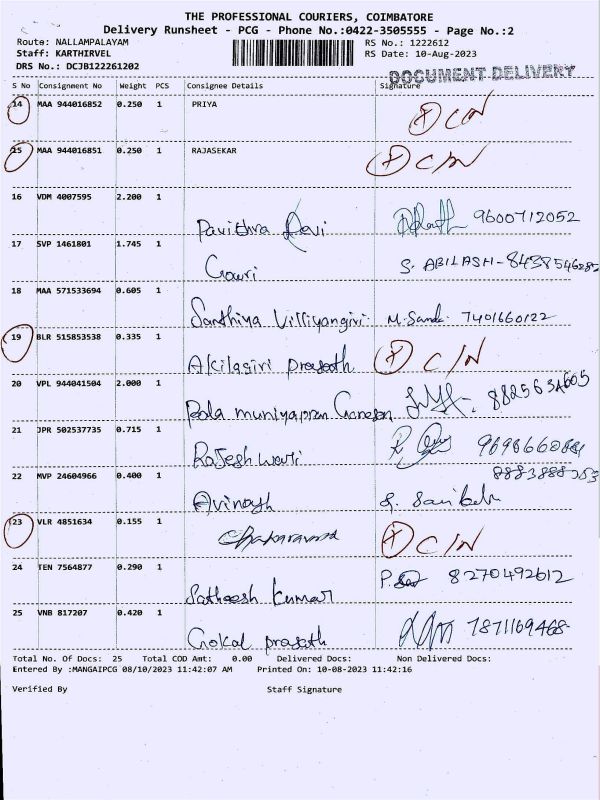 THE PROFESSIONAL COURIERS, COIMBATORE
Delivery Runsheet - PCG - Phone No.:0422-3505555 - Page No.:2
Route: NALLAMPALAYAM RS No.: 1222612
Staff: KARTHIRVEL RS Date: 10-Aug-2023
DRS No.: DCJB122261202
DOCUMENT DELIVERY
S No Consignment No Weight PCS Consignee Details Signature
14 MAA 944016852 0.250 1 PRIYA C/N
15 MAA 944016851 0.250 1 RAJASEKAR C/N
16 VDM 4007595 2.200 1 Pavithra Devi 9600712052
17 SVP 1461801 1.745 1 Gowri S. ABILASH-8438546282
18 MAA 571533694 0.605 1 Santhiya Villiyangiri M. Sande. 7401660122
19 BLR 515853538 0.335 1 Akilagiri prasath C/N
20 VPL 944041504 2.000 1 Bala muniyappan Ganesan 8825634605
21 JPR 502537735 0.715 1 Rajeshwari 9698660881
22 MVP 24604966 0.400 1 Avinash
23 VLR 4851634 0.155 1 C/N
24 TEN 7564877 0.290 1 Satheesh Kumar 8270492612
25 VNB 817207 0.420 1 Gokal prasath 7871169468
Total No. Of Docs: 25 Total COD Amt: 0.00 Delivered Docs: Non Delivered Docs:
Entered By :MANGAIPCG 08/10/2023 11:42:07 AM Printed On: 10-08-2023 11:42:16
Verified By Staff Signature